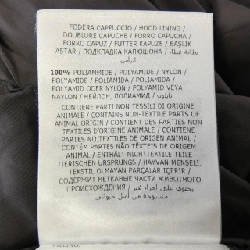 FODERA CAPPUCCIO / HOOD LINING /
DOUBLURE CAPUCHE / FORRO CAPUCHA /
FORRO CAPUZ / FUTTER KAPUZE / BAŞLIK
ASTAR / ПОДКЛАДКА КАПЮШОНА /
100% POLIAMMIDE / POLYAMIDE / NYLON /
POLYAMIDE / POLIAMIDA / POLIAMIDA /
POLYAMID ODER NYLON / POLYAMID VEYA
NAYLON / НЕЙЛОН, ПОЛИАМИД /
CONTIENE PARTI NON TESSILI DI ORIGINE
ANIMALE / CONTAINS NON-TEXTILE PARTS OF
ANIMAL ORIGIN / CONTIENT DES PARTIES NON
TEXTILES D'ORIGINE ANIMALE / CONTIENE
PARTES NO TEXTILES DE ORIGEN ANIMAL /
CONTÉM PARTES NÃO TÊXTEIS DE ORIGEM
ANIMAL / ENTHÄLT NICHTTEXTILE TEILE
TIERISCHEN URSPRUNGS / HAYVAN MENŞELİ,
TEKSTİL OLMAYAN PARÇALAR İÇERİR /
СОДЕРЖИТ НЕТКАНЫЕ ЧАСТИ ЖИВОТНОГО
ПРОИСХОЖДЕНИЯ /